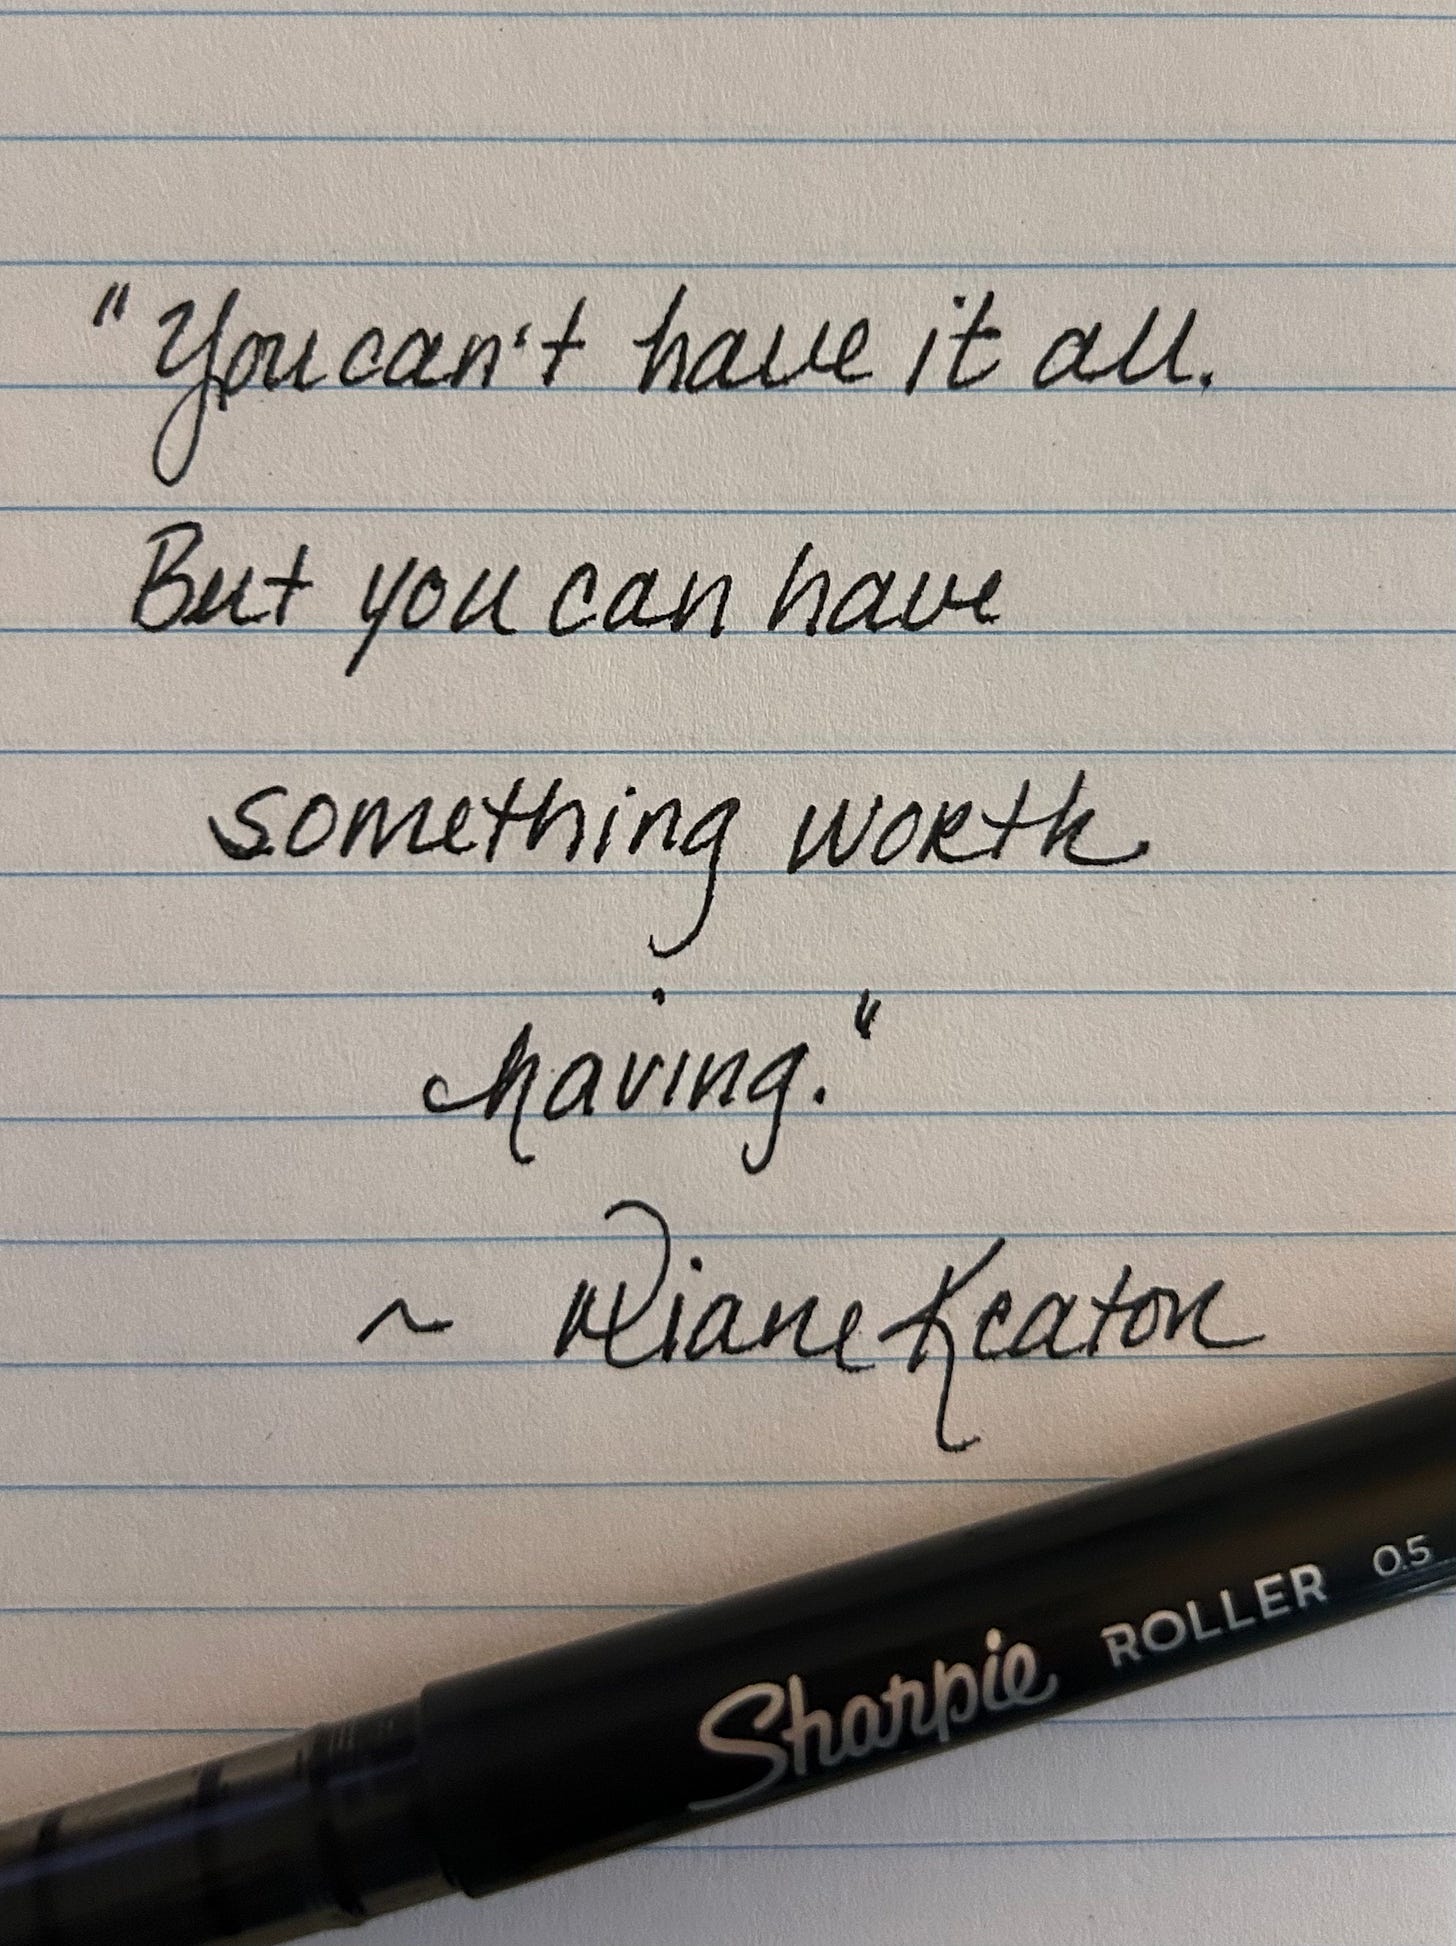 "You can't have it all.
But you can have
something worth
having."
~ Diane Keaton
Sharpie ROLLER 0.5